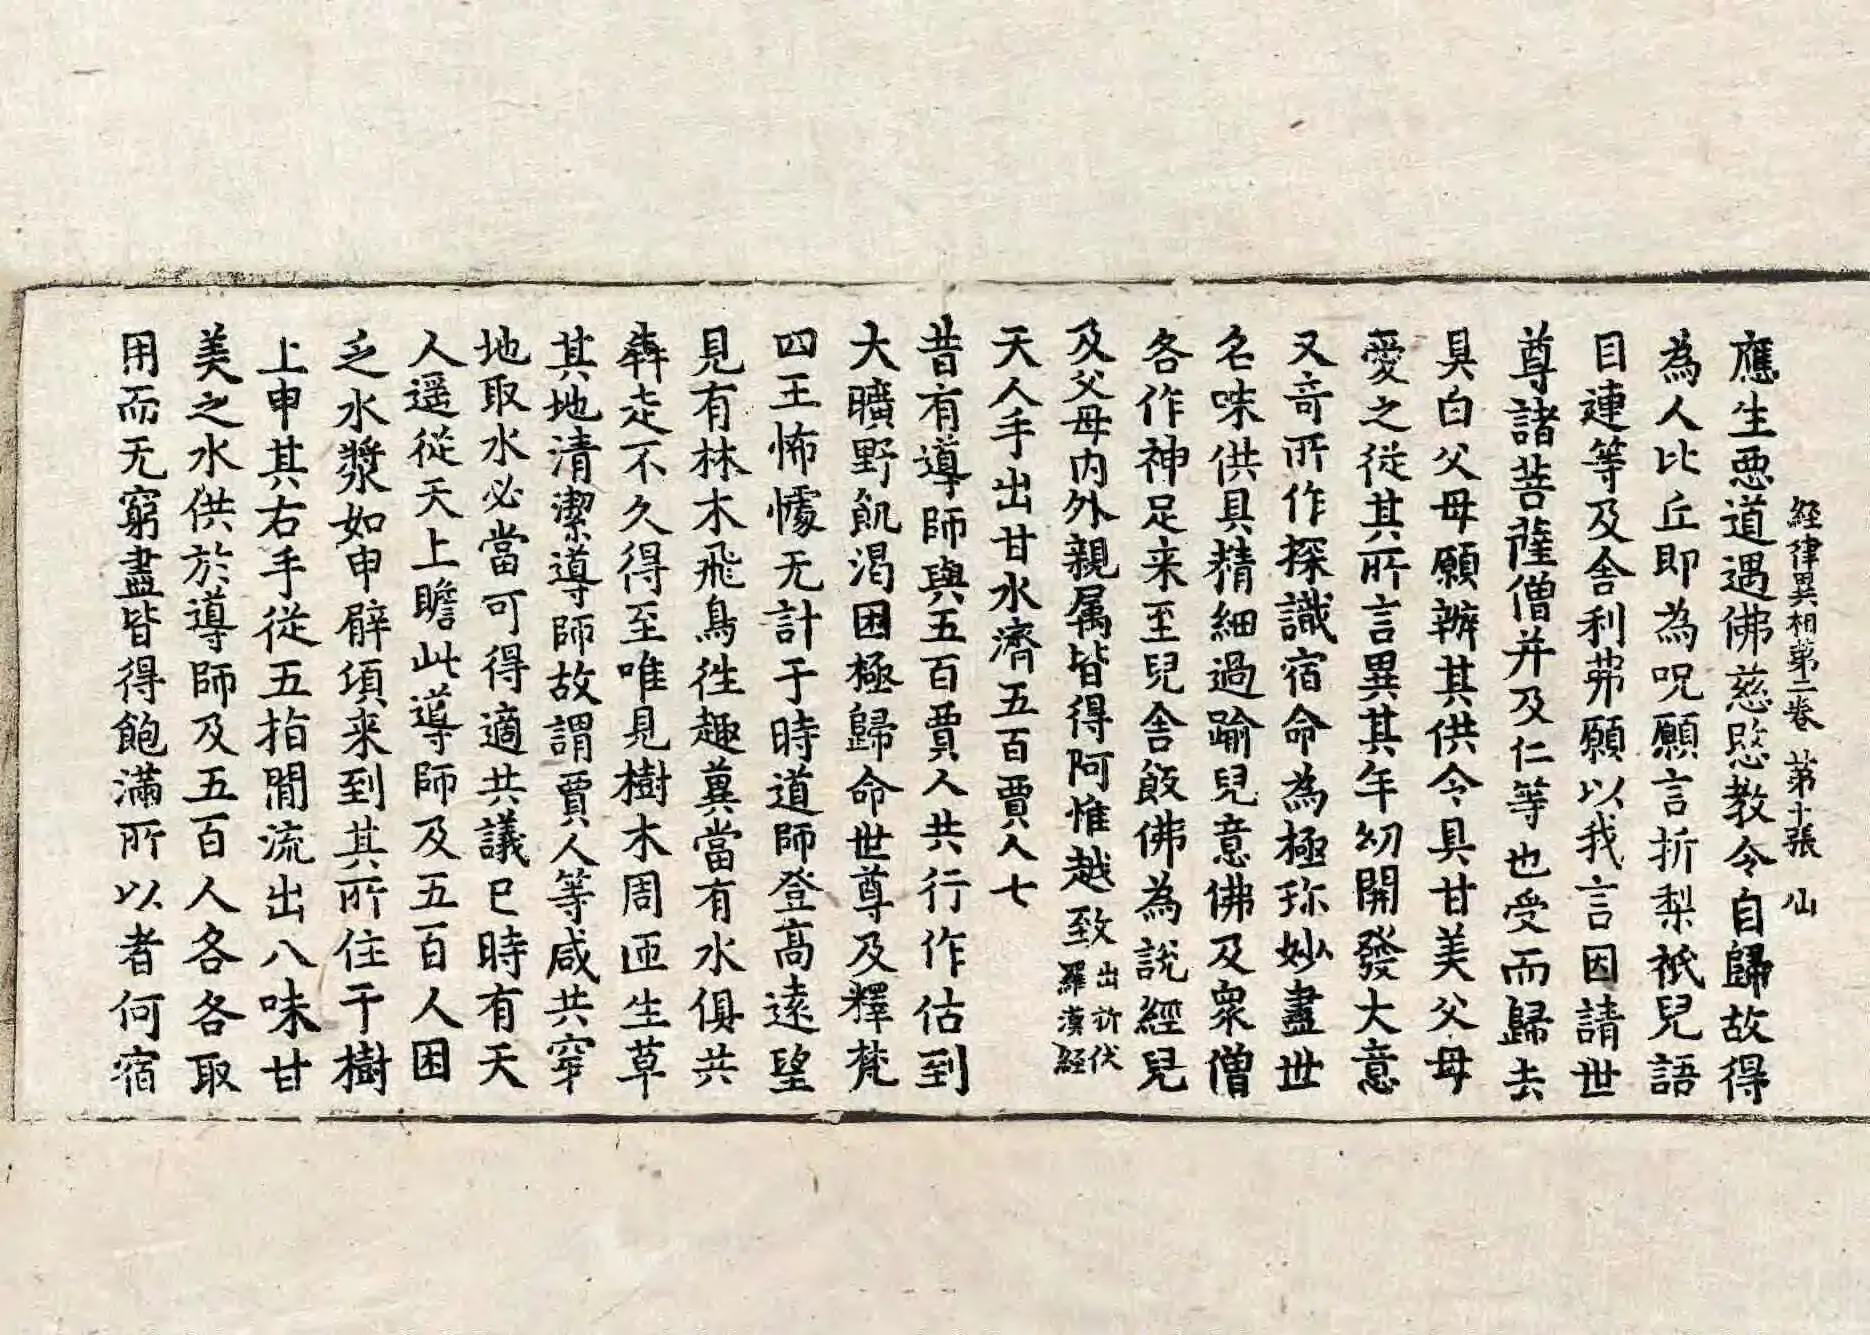 經律異相第二卷 第十張 仙
應生惡道遇佛慈愍教令自歸故得
為人比丘即為呪願言折梨祇兒語
目連等及舍利弗願以我言因請世
尊諸菩薩僧并及仁等也受而歸去
具白父母願辦其供令具甘美父母
愛之從其所言異其年幼開發大意
又竒所作探識宿命為極珎妙盡世
名味供具精細過踰兒意佛及衆僧
各作神足来至兒舍飯佛為說經兒
及父母内外親属皆得阿惟越致出祈伏羅漢經
天人手出甘水濟五百賈人七
昔有導師與五百賈人共行作估到
大曠野飢渇困極歸命世尊及釋梵
四王怖懅无計于時道師登高遠望
見有林木飛鳥徃趣冀當有水俱共
犇走不久得至唯見樹木周匝生草
其地清潔導師故謂賈人等咸共穿
地取水必當可得適共議已時有天
人遥從天上瞻此導師及五百人困
乏水漿如申臂頃来到其所住于樹
上申其右手從五指間流出八味甘
美之水供於導師及五百人各各取
用而无窮盡皆得飽滿所以者何宿